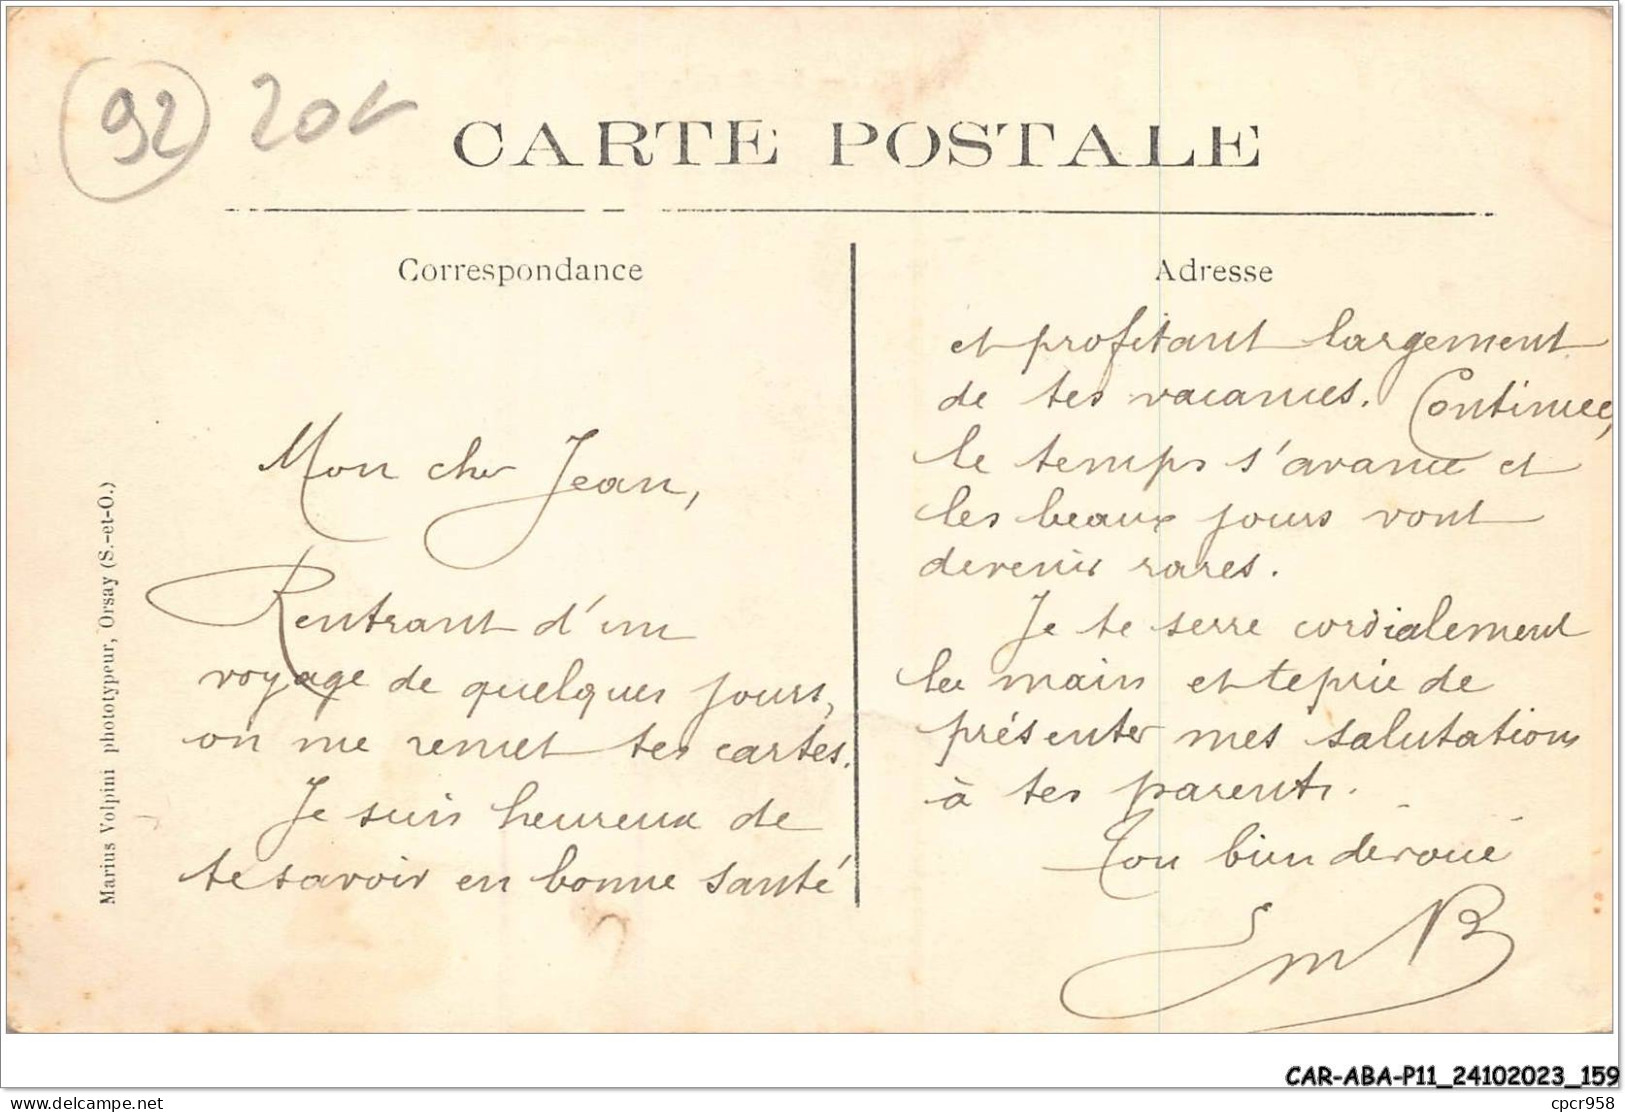 92 20
CARTE POSTALE
Correspondance
Adresse
Mon cher Jean,
Rentrant d'un
voyage de quelques jours,
on me remet tes cartes.
Je suis heureux de
te savoir en bonne santé
et profitant largement
de tes vacances. Continue,
le temps s'avance et
les beaux jours vont
devenir rares.
Je te serre cordialement
la main et te prie de
présenter mes salutations
à tes parents.
Ton bien dévoué
Marius Volpini phototypeur, Orsay (S.-et-O.)
CAR-ABA-P11_24102023_159
www.delcampe.net
cpcr958